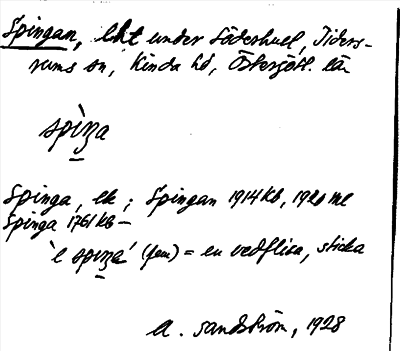 Spingan, lht under Söderhult, Tiders-
rums sn, Kinda hd, Österjötl. län
spiṉa
Spinga, ek; Spingan 1914 kb, 1920 ml
Spinga 1761 kb —
'e spiṉa' (fem) = en vedflisa, sticka
A. Sandström, 1928